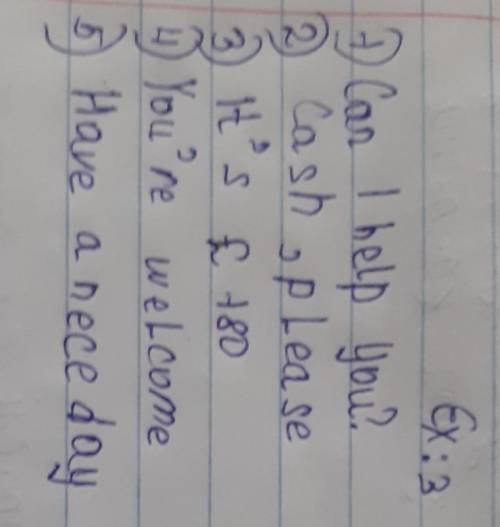 Ex: 3
1) Can I help you?
2) Cash, pLease
3) It's £ 180
4) You're weLcome
5) Have a nece day